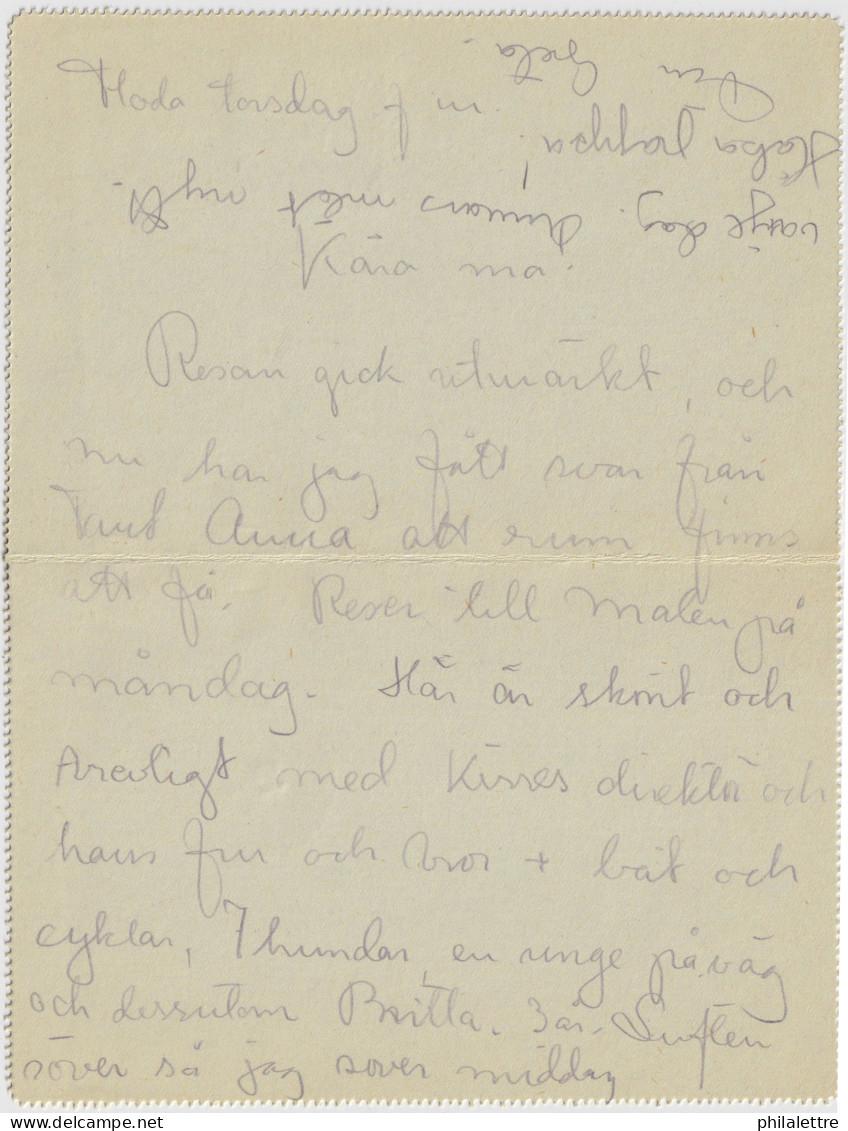 Hoda torsdag f m.
Kära ma.
Resan gick utmärkt, och
nu har jag fått svar från
Tant Anna att rum finns
att få. Reser till Malen på
måndag. Här är skönt och
trevligt med Kisses direktör och
hans fru och bror + båt och
cyklar, 7 hundar, en unge på väg
och dessutom Britta. 3 år. Luften
söver så jag sover middag
varje dag. Annars intet nytt.
Hälsa pappa!
Din Greta.
philalettre